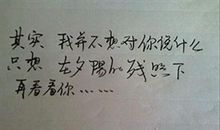 其实 我并不想对你说什么
只想 在夕陽的残照下
再看看你……